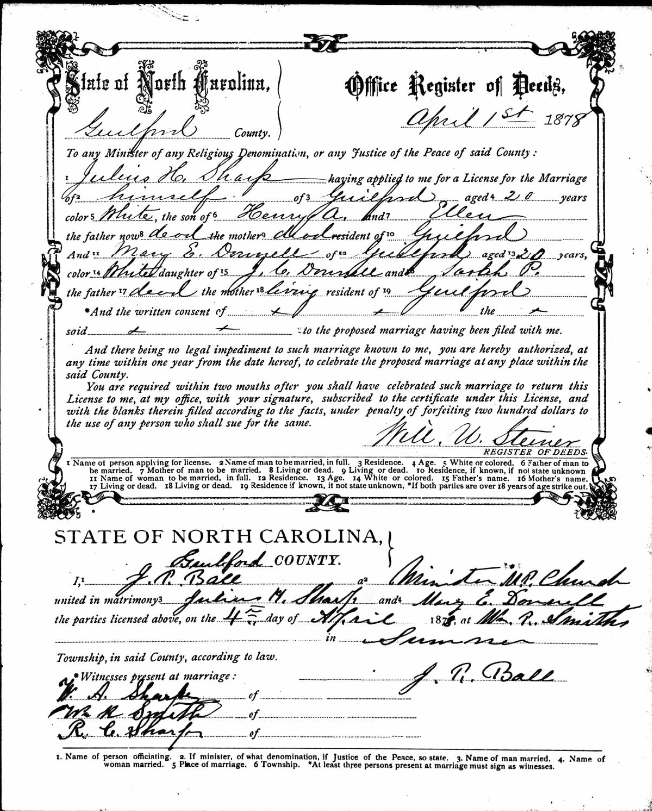 State of North Carolina,
Office Register of Deeds,
Guilford County.
April 1st 1878
To any Minister of any Religious Denomination, or any Justice of the Peace of said County:
1 Julius H. Sharp having applied to me for a License for the Marriage
of2 himself of3 Guilford aged4 20 years
color5 White, the son of6 Henry A. and7 Ellen
the father now8 dead the mother9 dead resident of10 Guilford
And11 Mary E. Donnell of12 Guilford aged13 20 years,
color14 White daughter of15 J. C. Donnell and16 Sarah P.
the father17 dead the mother18 living resident of19 Guilford
*And the written consent of x x the x
said x x : to the proposed marriage having been filed with me.
And there being no legal impediment to such marriage known to me, you are hereby authorized, at
any time within one year from the date hereof, to celebrate the proposed marriage at any place within the
said County.
You are required within two months after you shall have celebrated such marriage to return this
License to me, at my office, with your signature, subscribed to the certificate under this License, and
with the blanks therein filled according to the facts, under penalty of forfeiting two hundred dollars to
the use of any person who shall sue for the same.
Will. U. Steiner
REGISTER OF DEEDS
1 Name of person applying for license. 2 Name of man to be married, in full. 3 Residence. 4 Age. 5 White or colored. 6 Father of man to
be married. 7 Mother of man to be married. 8 Living or dead. 9 Living or dead. 10 Residence, if known, if not state unknown
11 Name of woman to be married, in full. 12 Residence. 13 Age. 14 White or colored. 15 Father's name. 16 Mother's name.
17 Living or dead. 18 Living or dead. 19 Residence if known, if not state unknown, *If both parties are over 18 years of age strike out.
STATE OF NORTH CAROLINA,
Guilford COUNTY.
I,1 J. R. Ball a2 Minister M.P. Church
united in matrimony3 Julius H. Sharp and4 Mary E. Donnell
the parties licensed above, on the 4th day of April 1878, at Wm. R. Smiths
in Sumner
Township, in said County, according to law.
*Witnesses present at marriage:
J. R. Ball
W. A. Sharpe of
Wm R Smith of
R. C. Sharpe of
1. Name of person officiating. 2. If minister, of what denomination, if Justice of the Peace, so state. 3. Name of man married. 4. Name of
woman married. 5 Place of marriage. 6 Township. *At least three persons present at marriage must sign as witnesses.